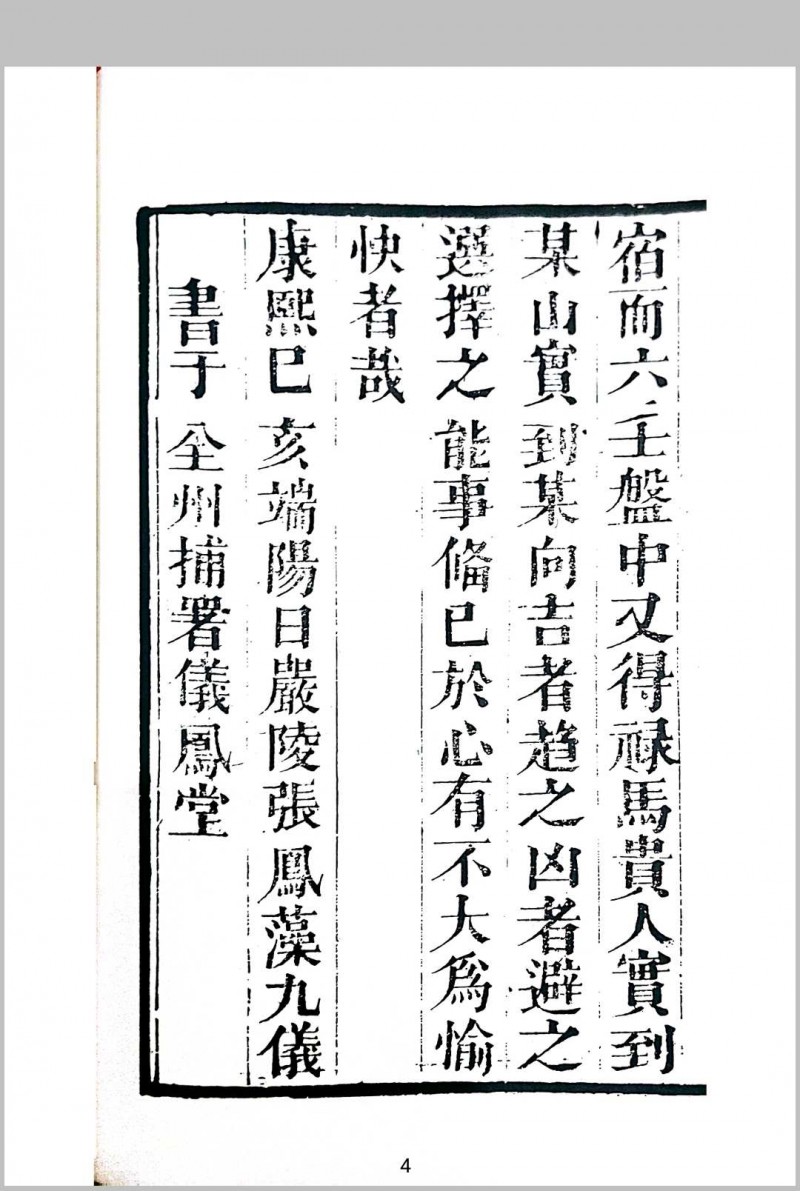 宿而六壬盤中又得祿馬貴人實到
某山實到某向吉者趋之凶者避之
選擇之能事俻已於心有不大爲愉
快者哉
康熙己亥端陽日嚴陵張鳳藻九儀
書于全州捕署儀鳳堂
4